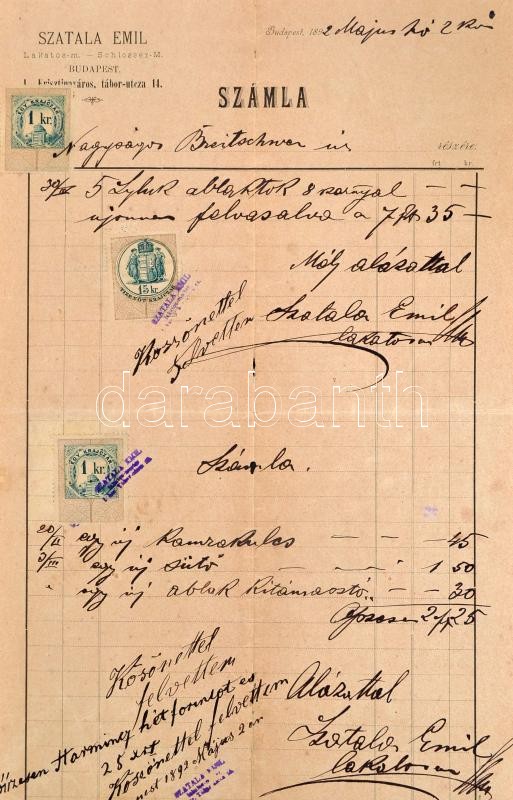 SZATALA EMIL
Lakatos-m. — Schlosser-M.
BUDAPEST.
I. Krisztinaváros, tábor-utcza 14.
Budapest, 1892 Majus hó 2 kán
SZÁMLA
EGY KRAJCZÁR
1 kr.
Nagyságos Breitschwer úr részére.
frt kr.
5 ablaktok 8 szárnyal — —
ujonnan felvasalva a 7 frt 35 —
15 kr.
TIZENÖT KRAJCZÁR
SZATALA EMIL
Mély alázattal
Köszönettel
felvettem
Szatala Emil
lakatos
darabanth
EGY KRAJCZÁR
1 kr.
SZATALA EMIL
Számla.
20/II egy új kamrakulcs — — — 45
3/III egy új sütő 1 50
" egy új ablak kitámasztó — 30
2 frt 25
Köszönettel
felvettem
Összesen Harmincz hét forintot és
25 xrt
Köszönettel felvettem
1892 Május 2 án
SZATALA EMIL
Alázattal
Szatala Emil
lakatos